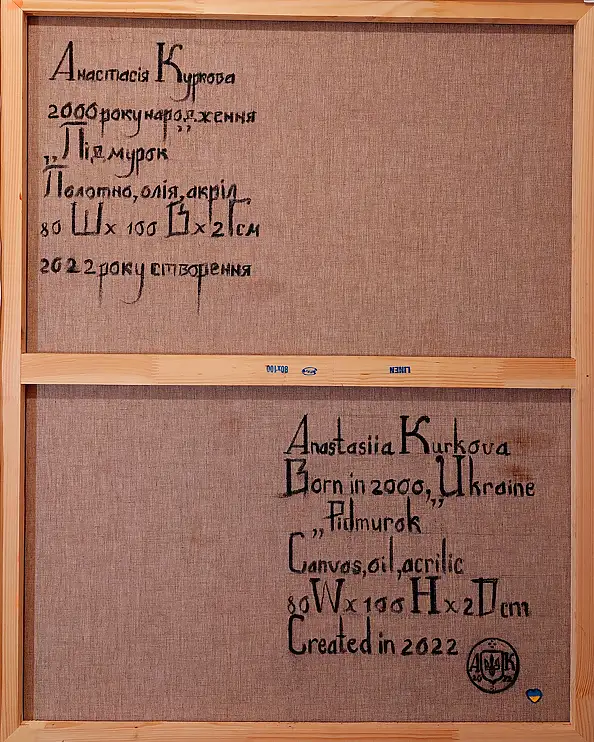 Анастасія Куркова
2000 року народження
„Підмурок”
Полотно, олія, акріл
80 Ш x 100 В x 2 Г см
2022 року створення
80x100 LINEN
Anastasiia Kurkova
Born in 2000, Ukraine
„Pidmurok”
Canvas, oil, acrilic
80 W x 100 H x 2 D cm
Created in 2022
А К
20 22